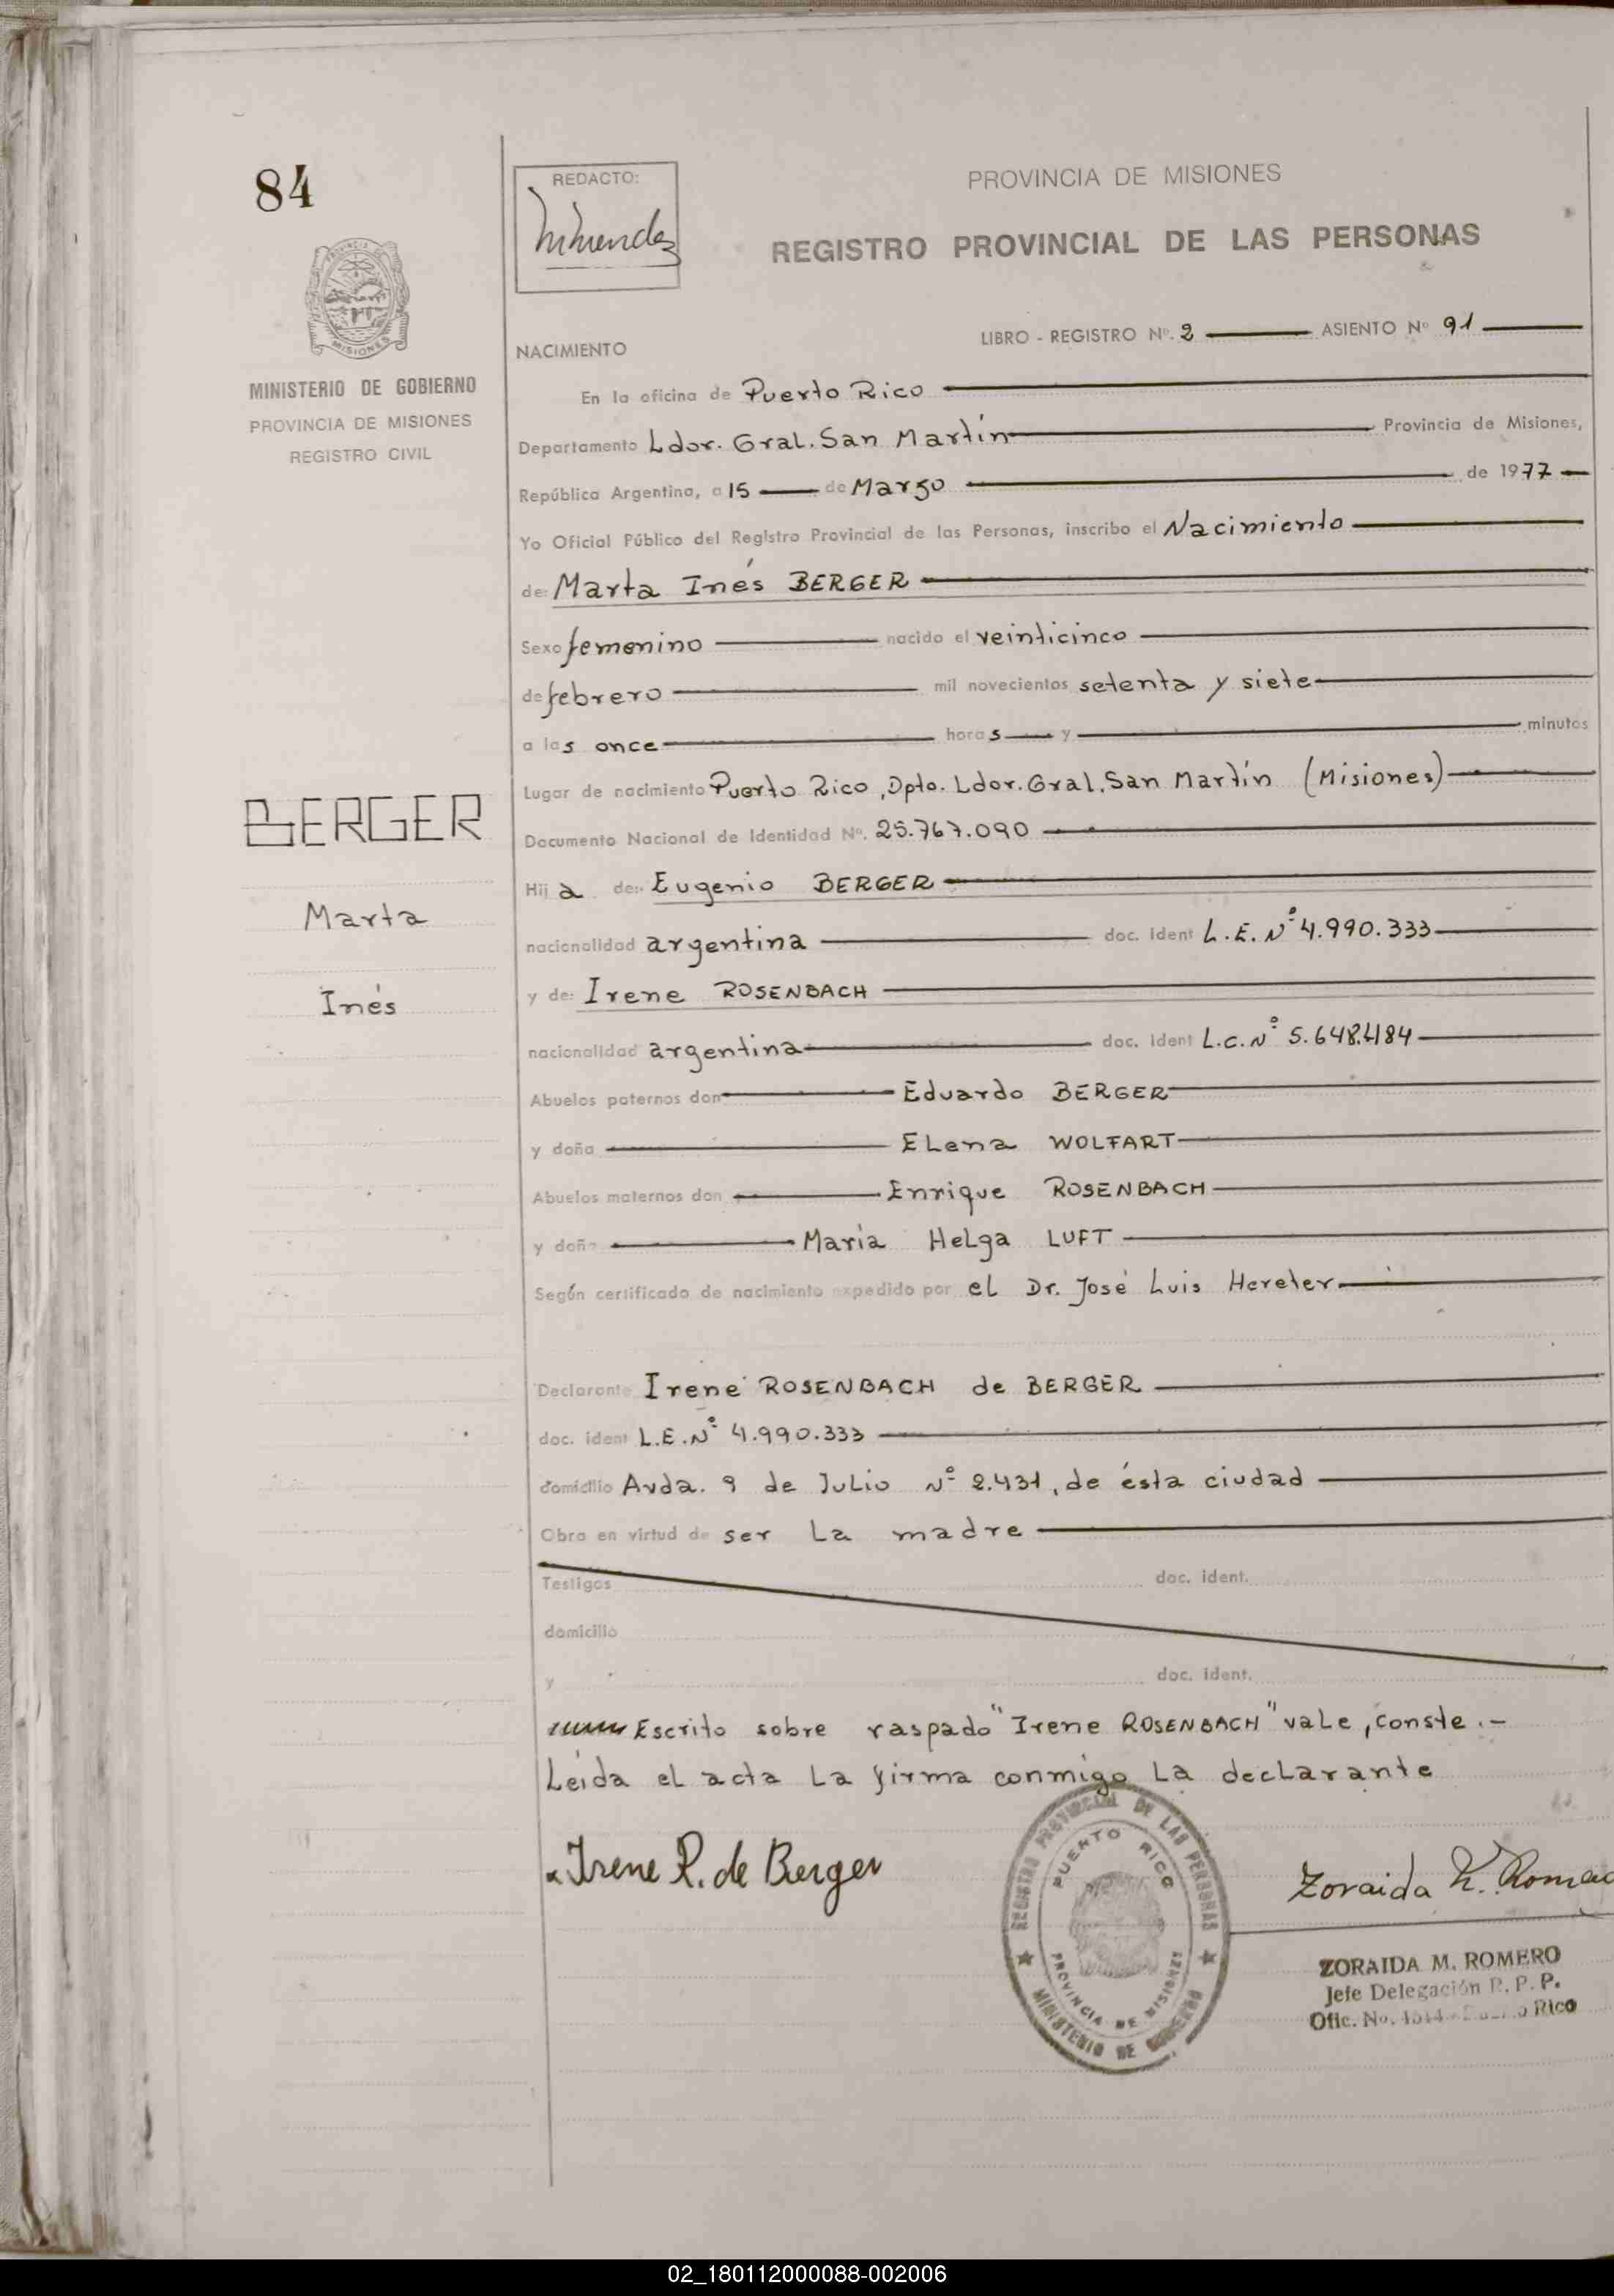 84
REDACTO:
PROVINCIA DE MISIONES
REGISTRO PROVINCIAL DE LAS PERSONAS
MISIONES
MINISTERIO DE GOBIERNO
PROVINCIA DE MISIONES
REGISTRO CIVIL
NACIMIENTO
LIBRO - REGISTRO Nº. 2 ASIENTO Nº 91
En la oficina de Puerto Rico
Departamento Ldor. Gral. San Martín Provincia de Misiones,
República Argentina, a 15 de Marzo de 1977
Yo Oficial Público del Registro Provincial de las Personas, inscribo el Nacimiento
de: Marta Inés BERGER
Sexo femenino nacido el veinticinco
de febrero mil novecientos setenta y siete
a las once horas y minutos
Lugar de nacimiento Puerto Rico, Dpto. Ldor. Gral. San Martín (Misiones)
BERGER
Marta
Inés
Documento Nacional de Identidad Nº. 25.767.090
Hija de: Eugenio BERGER
nacionalidad argentina doc. ident L.E. Nº 4.990.333
y de: Irene ROSENBACH
nacionalidad argentina doc. ident L.C. Nº 5.648.484
Abuelos paternos don Eduardo BERGER
y doña Elena WOLFART
Abuelos maternos don Enrique ROSENBACH
y doña María Helga LUFT
Según certificado de nacimiento expedido por el Dr. José Luis Hereter
Declarante Irene ROSENBACH de BERGER
doc. ident L.E. Nº 4.990.333
domicilio Avda. 9 de Julio Nº 2.431, de ésta ciudad
Obra en virtud de ser la madre
Testigos doc. ident.
domicilio
y doc. ident.
Escrito sobre raspado "Irene ROSENBACH" vale, conste.-
Leída el acta la firma conmigo la declarante
Irene R. de Berger
REGISTRO PROVINCIAL DE LAS PERSONAS
PUERTO RICO
PROVINCIA DE MISIONES
MINISTERIO DE GOBIERNO
Zoraida M. Romero
ZORAIDA M. ROMERO
Jefe Delegación R. P. P.
Ofic. No. Rico
02_180112000088-002006